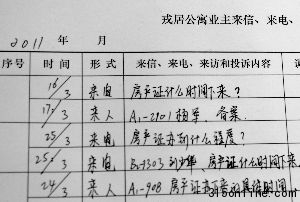 戎居公寓业主来信、来电、
2011年 月
序号 时间 形式 来信、来电、来访和投诉内容
16/3 来电 房产证什么时间下来?
17/3 来人 A1-2901 杨军 备案.
25/3 来电 房产证办到什么程度?
25/3 来电 B1-1303 房产证什么时间下来
24/3 来人 A1-908 房产证办 具体时间
315online.com